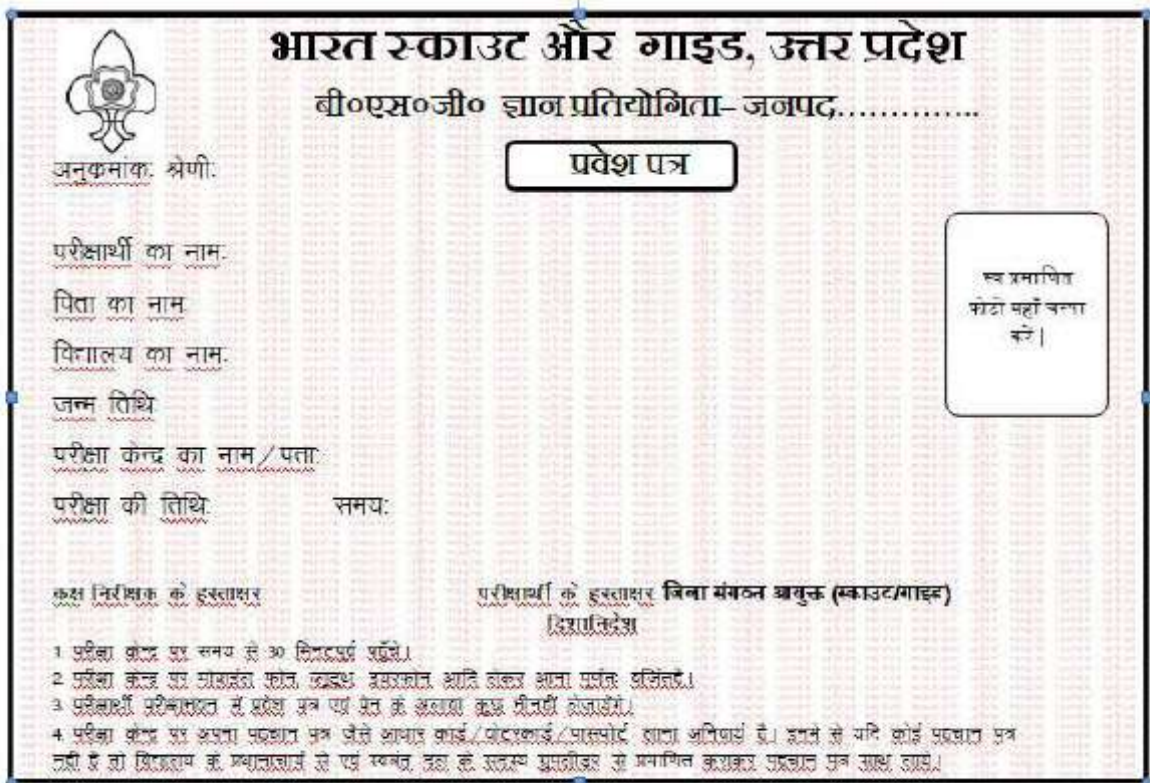 भारत स्काउट और गाइड, उत्तर प्रदेश
बी०एस०जी० ज्ञान प्रतियोगिता– जनपद..............
प्रवेश पत्र
अनुकमांक: श्रेणी:
परीक्षार्थी का नाम:
स्व प्रमाणित
फोटो यहाँ चस्पा
करें |
पिता का नाम
विद्यालय का नाम:
जन्म तिथि
परीक्षा केन्द्र का नाम/पता:
परीक्षा की तिथि: समय:
कक्ष निरीक्षक के हस्ताक्षर
परीक्षार्थी के हस्ताक्षर जिला संगठन आयुक्त (स्काउट/गाइड)
दिशानिदेश
1 परीक्षा केन्द्र पर समय से 30 मिनटपूर्व पहुँचे।
2 परीक्षा केन्द्र पर मोबाईल फोन, ब्लूटूथ, इयरफोन आदि लेकर आना पूर्णतः वर्जितहै।
3 परीक्षार्थी परीक्षाभवन में प्रवेश पत्र एवं पेन के अलावा कुछ भीनहीं लेजाऐंगे।
4 परीक्षा केन्द्र पर अपना पहचान पत्र जैसे आधार कार्ड/वोटरकार्ड/पासपोर्ट लाना अनिवार्य है। इनमे से यदि कोई पहचान पत्र
नही है तो विद्यालय के प्रधानाचार्य से एवं स्वतंत्र दल के सदस्य ग्रुपलीडर से प्रमाणित कराकर पहचान पत्र साथ लायें।